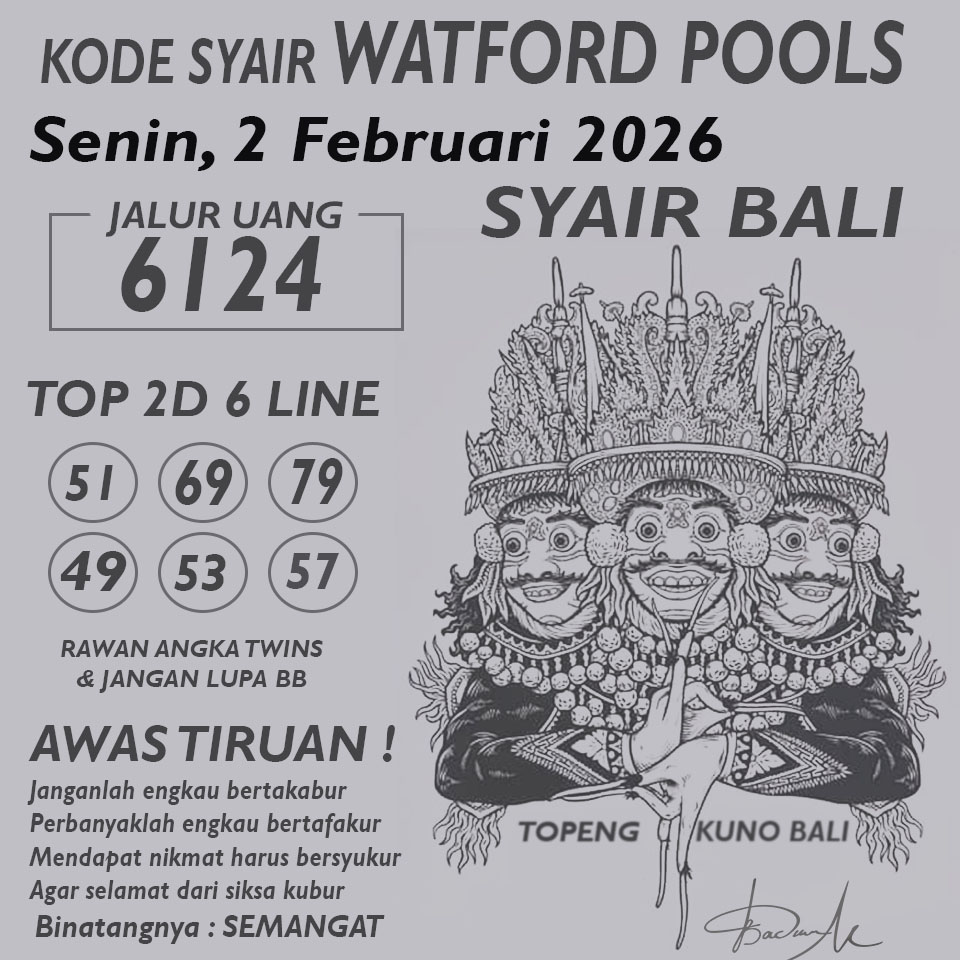 KODE SYAIR WATFORD POOLS
Senin, 2 Februari 2026
SYAIR BALI
JALUR UANG
6124
TOP 2D 6 LINE
51 69 79
49 53 57
RAWAN ANGKA TWINS
& JANGAN LUPA BB
AWAS TIRUAN !
Janganlah engkau bertakabur
Perbanyaklah engkau bertafakur
Mendapat nikmat harus bersyukur
Agar selamat dari siksa kubur
Binatangnya : SEMANGAT
TOPENG KUNO BALI